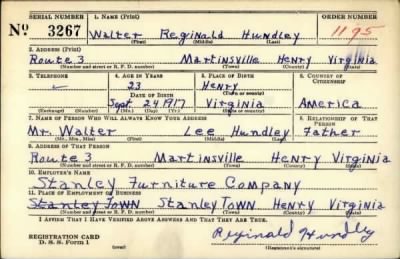 SERIAL NUMBER 1. NAME (Print) ORDER NUMBER
No 3267 Walter Reginald Hundley 1195
(First) (Middle) (Last)
2. ADDRESS (Print)
Route 3 Martinsville Henry Virginia
(Number and street or R. F. D. number) (Town) (County) (State)
3. TELEPHONE 4. AGE IN YEARS 5. PLACE OF BIRTH 6. COUNTRY OF CITIZENSHIP
✓ 23 Henry
DATE OF BIRTH (Town or county)
Sept. 24 1917 Virginia America
(Exchange) (Number) (Mo.) (Day) (Yr.) (State or country)
7. NAME OF PERSON WHO WILL ALWAYS KNOW YOUR ADDRESS 8. RELATIONSHIP OF THAT PERSON
Mr. Walter Lee Hundley Father
(Mr., Mrs., Miss) (First) (Middle) (Last)
9. ADDRESS OF THAT PERSON
Route 3 Martinsville Henry Virginia
(Number and street or R. F. D. number) (Town) (County) (State)
10. EMPLOYER'S NAME
Stanley Furniture Company
11. PLACE OF EMPLOYMENT OR BUSINESS
Stanley Town Stanley Town Henry Virginia
(Number and street or R. F. D. number) (Town) (County) (State)
I AFFIRM THAT I HAVE VERIFIED ABOVE ANSWERS AND THAT THEY ARE TRUE.
REGISTRATION CARD Reginald Hundley
D. S. S. Form 1 (Registrant's signature)